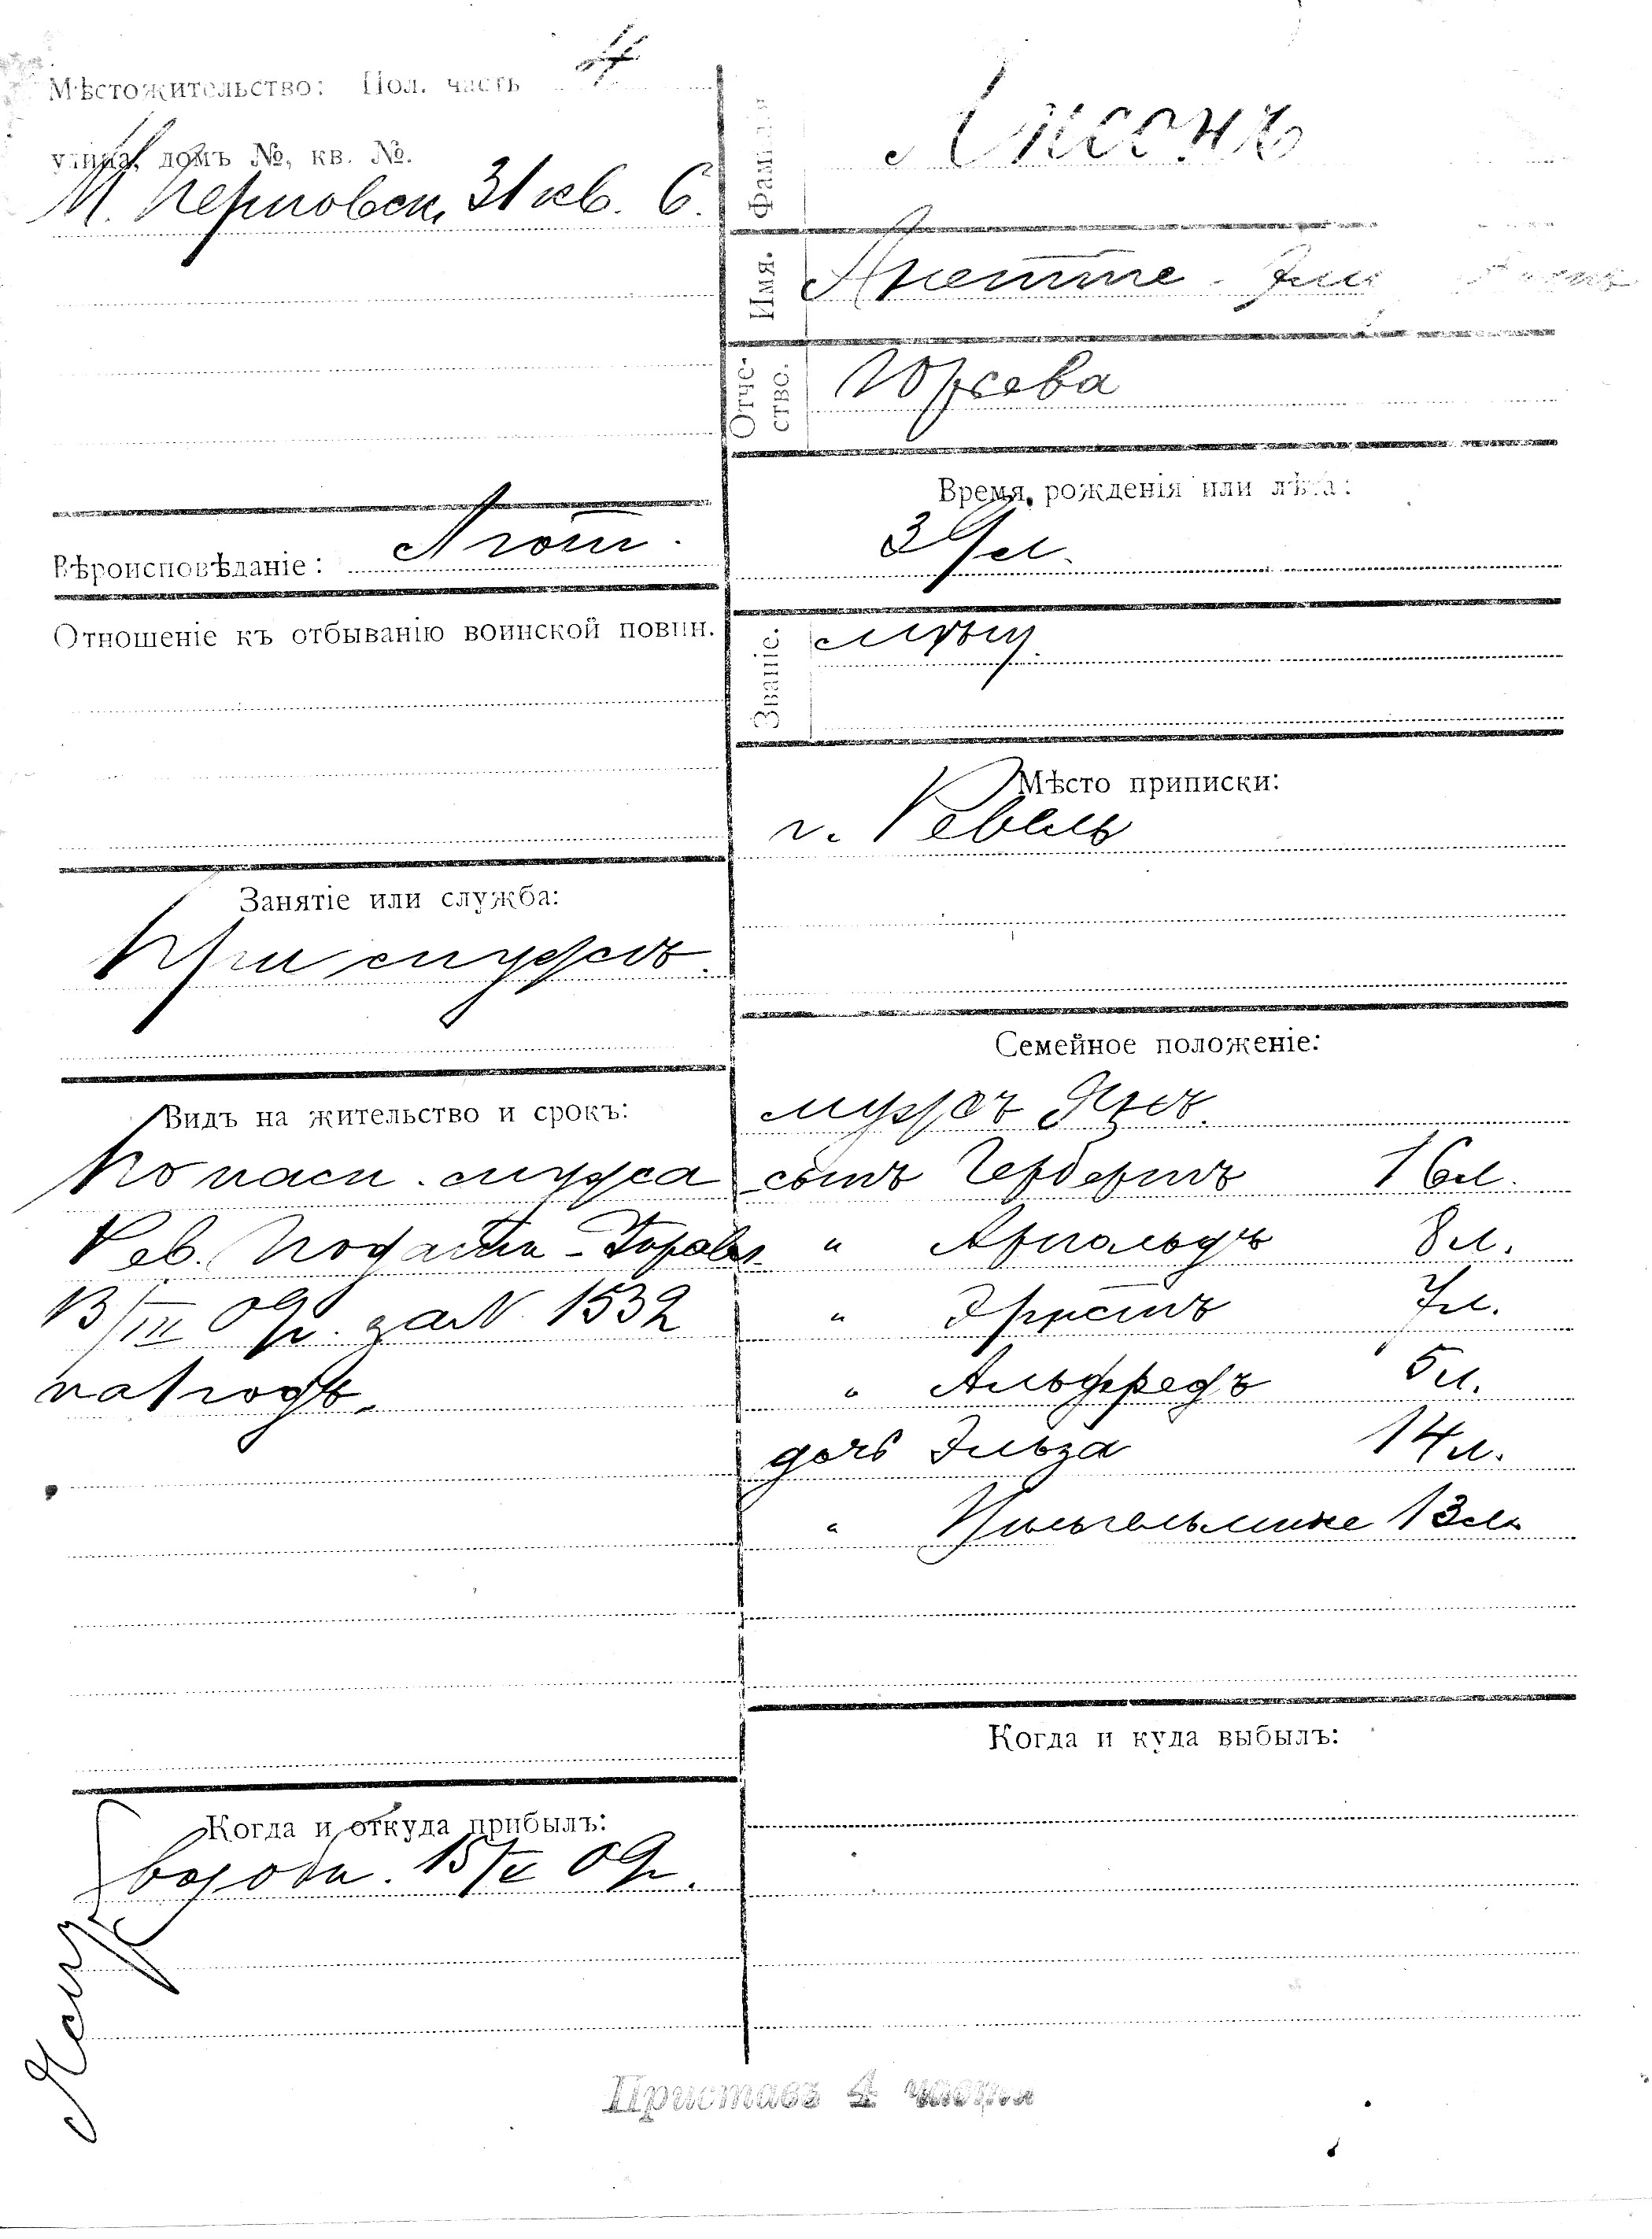 Мѣстожительство: Пол. часть 4
улица, домъ №, кв. №.
М. Перновск. 31 кв. 6.
Вѣроисповѣданіе: Лют.
Отношеніе къ отбыванію воинской повин.
Занятіе или служба:
При мужѣ.
Видъ на жительство и срокъ:
По пасп. мужа
Рев. Податн.
13/III 09 г. за N 1532
на 1 годъ.
Когда и откуда прибылъ:
15/V 09 г.
Фамилія
Имя.
Анетте
Отче-
ство.
Юрьева
Время рожденія или лѣта:
39 л.
Званіе.
мѣщ.
Мѣсто приписки:
г. Ревель
Семейное положеніе:
мужъ Янъ.
сынъ Гербертъ 16 л.
" Арнольдъ 8 л.
" Эрнстъ 7 л.
" Альфредъ 5 л.
дочь Эльза 14 л.
" Вильгельмине 13 л.
Когда и куда выбылъ:
Приставъ 4 части